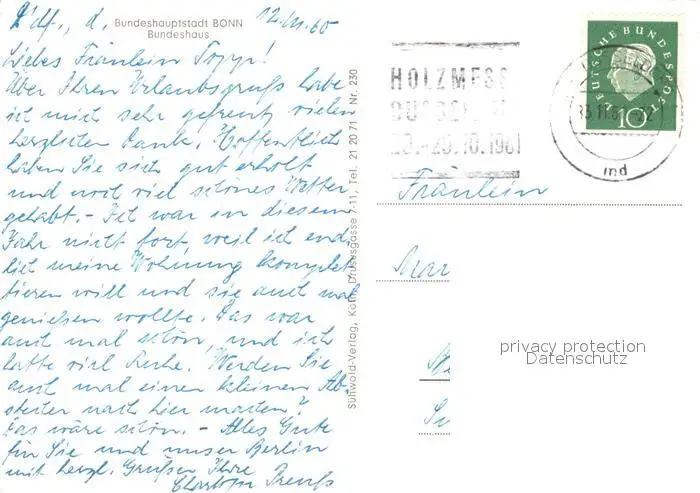 D'df., d. 12.11.60
Bundeshauptstadt BONN
Bundeshaus
Liebes Fräulein Topp!
Über Ihren Urlaubsgruß habe
ich mich sehr gefreut, vielen
herzlichen Dank. Hoffentlich
haben Sie sich gut erholt
und noch viel schönes Wetter
gehabt. - Ich war in diesem
Jahr nicht fort, weil ich end-
lich meine Wohnung komplet-
tieren will und sie auch mal
genießen wollte. Das war
auch mal schön, und ich
hatte viel Ruhe. Werden Sie
auch mal einen kleinen Ab-
stecher nach hier machen?
Das wäre schön. - Alles Gute
für Sie und unser Berlin
mit herzl. Grüßen Ihre
Preuß
Sühwold-Verlag, Köln, Drususgasse 7-11, Tel. 21 20 71 Nr. 230
HOLZMESS
20.10.1961
DEUTSCHE BUNDESPOST
10
Fräulein
Mar
privacy protection
Datenschutz